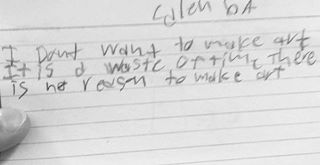 Calen bA
I Dont want to make art
It is a waste of time there
is no reason to make art